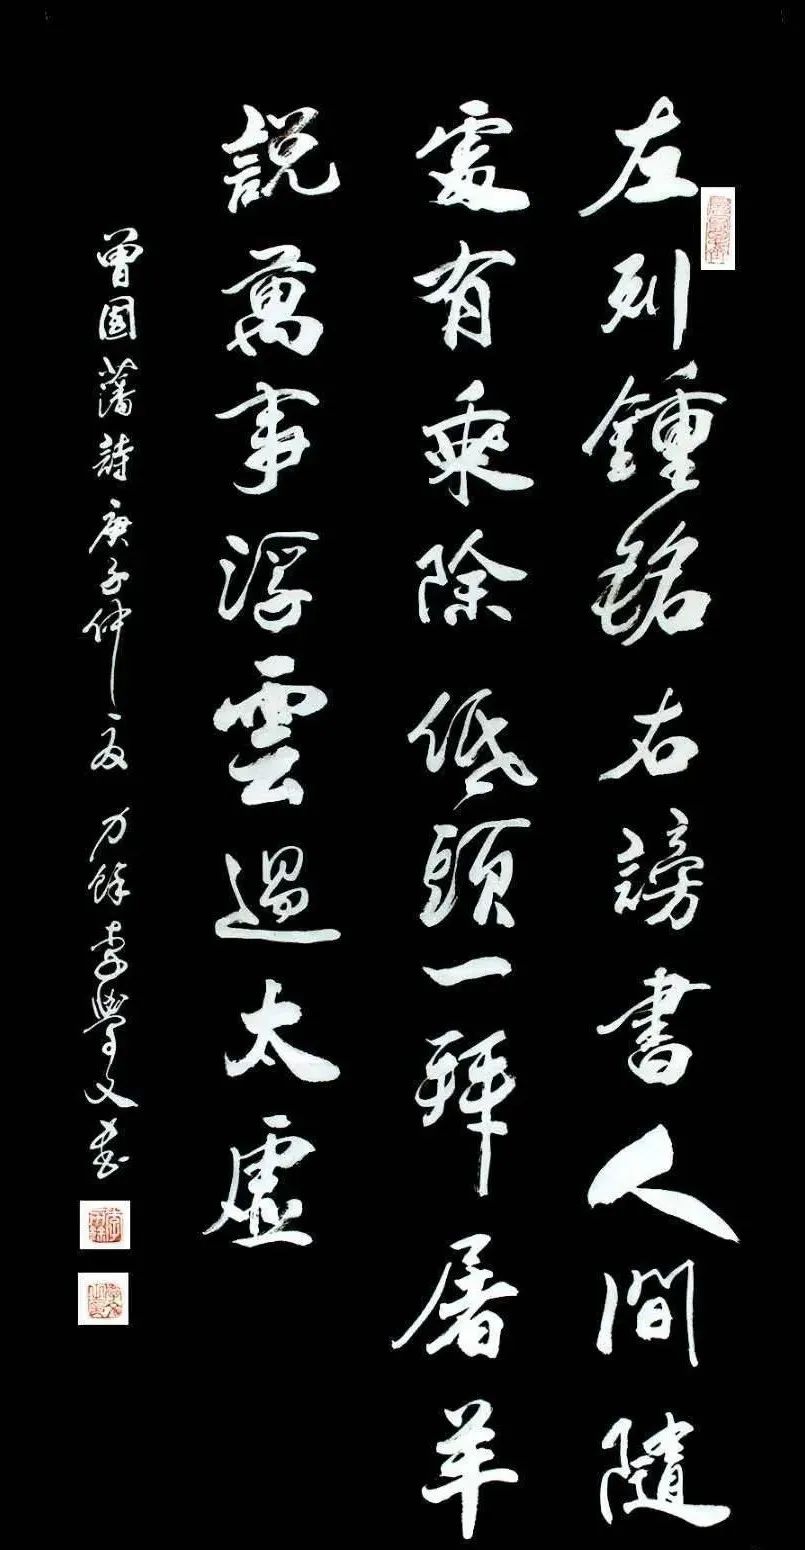 左列鍾銘右謗書人間隨
處有乘除低頭一拜屠羊
說萬事浮雲過太虛
曾國藩詩庚子仲夏力餘李學文書